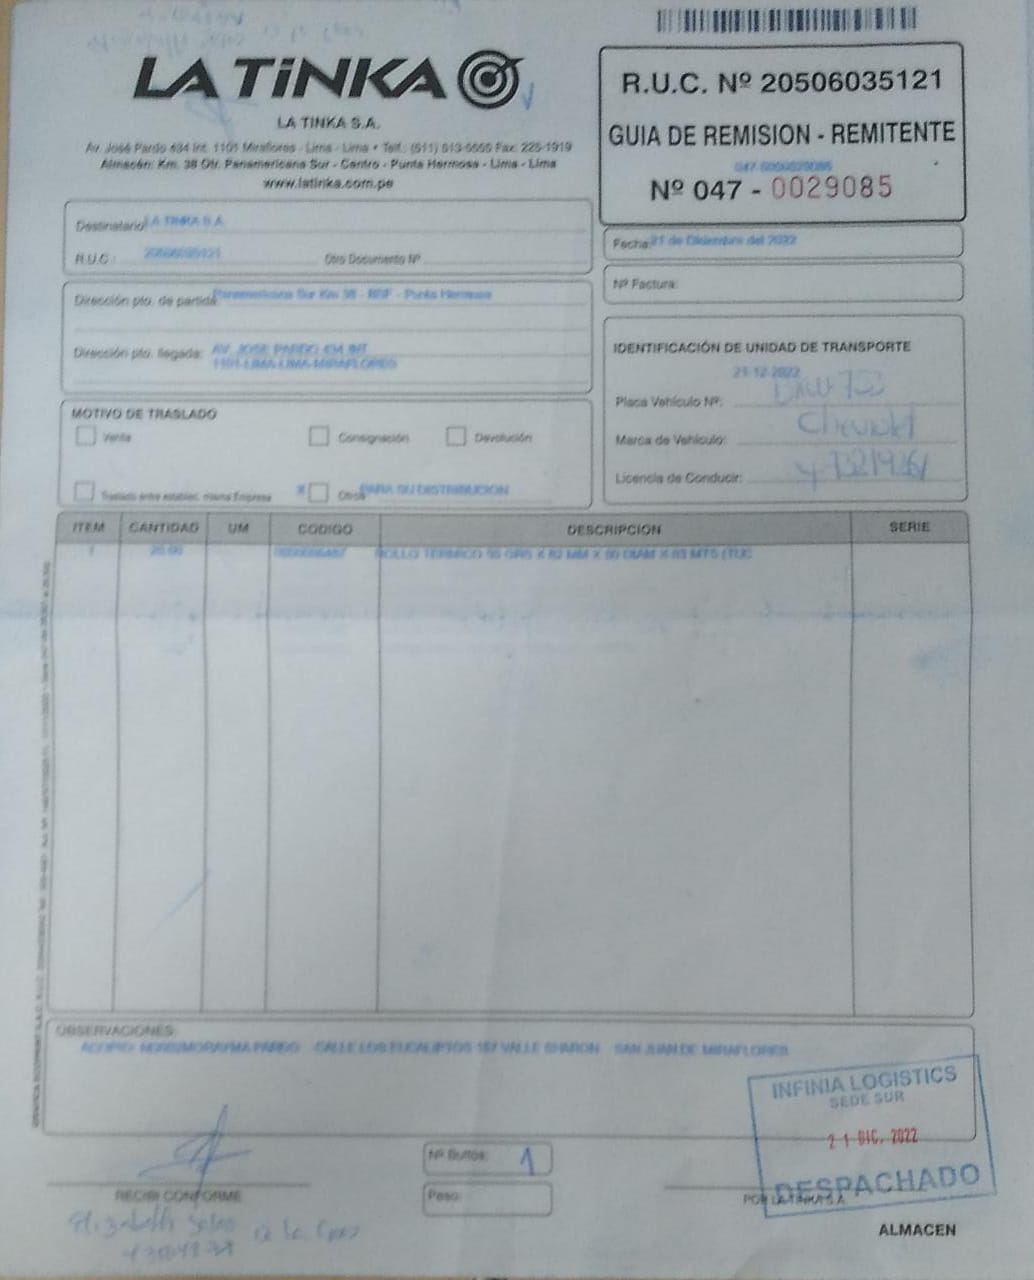 LA TiNKA
LA TINKA S.A.
Av. José Pardo 434 Int. 1101 Miraflores - Lima - Lima • Telf.: (511) 513-5555 Fax: 225-1919
Almacén: Km. 38 Qtr. Panamericana Sur - Centro - Punta Hermosa - Lima - Lima
www.latinka.com.pe
R.U.C. Nº 20506035121
GUIA DE REMISION - REMITENTE
Nº 047 - 0029085
Destinatario: LA TINKA S.A.
R.U.C.: 20506035121 Otro Documento Nº
Fecha: 21 de Diciembre del 2022
Nº Factura:
Dirección pto. de partida: Panamericana Sur Km 38 - BSF - Punta Hermosa
Dirección pto. llegada: AV. JOSE PARDO 434 INT.
1101-LIMA-LIMA-MIRAFLORES
IDENTIFICACIÓN DE UNIDAD DE TRANSPORTE
21-12-2022
Placa Vehículo Nº:
Marca de Vehículo: Chevrolet
Licencia de Conducir:
MOTIVO DE TRASLADO
Venta Consignación Devolución
Traslado entre establec. misma Empresa X Otros PARA SU DISTRIBUCION
ITEM CANTIDAD UM CODIGO DESCRIPCION SERIE
1 20.00 ROLLO TERMICO 55 GRS X 82 MM X 80 DIAM X 63 MTS (TUC
OBSERVACIONES:
PARDO CALLE LOS EUCALIPTOS 187 VALLE SHARON SAN JUAN DE MIRAFLORES
INFINIA LOGISTICS
SEDE SUR
21 DIC. 2022
DESPACHADO
Nº Bultos: 1
Peso:
RECIBI CONFORME
POR LA TINKA S.A.
Elizabeth
ALMACEN